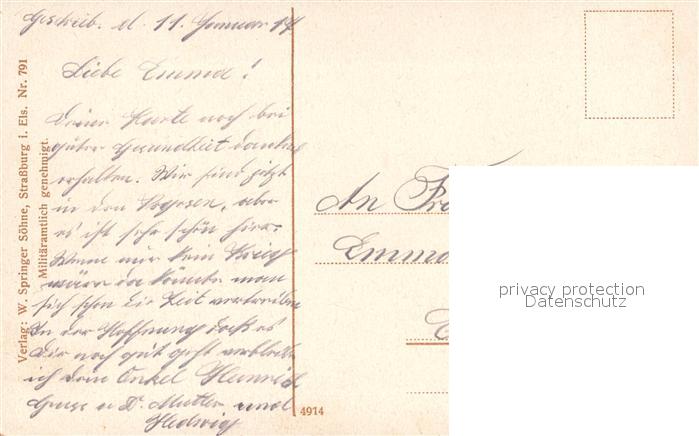 Geschrieb. d. 11. Januar 17
Liebe Emma!
Deine Karte noch bei
guter Gesundheit dankend
erhalten. Wir sind jetzt
in den Vogesen, aber
es ist sehr schön hier.
Wenn nur kein Krieg
wäre da könnte man
sich schon die Zeit vertreiben
In der Hoffnung daß es
Dir noch gut geht verbleibe
ich dein Onkel Heinrich
Gruss a. D. Mutter und
Hedwig
Verlag: W. Springer Söhne, Straßburg i. Els. Nr. 791
Militäramtlich genehmigt.
4914
An Fr
Emma
privacy protection
Datenschutz